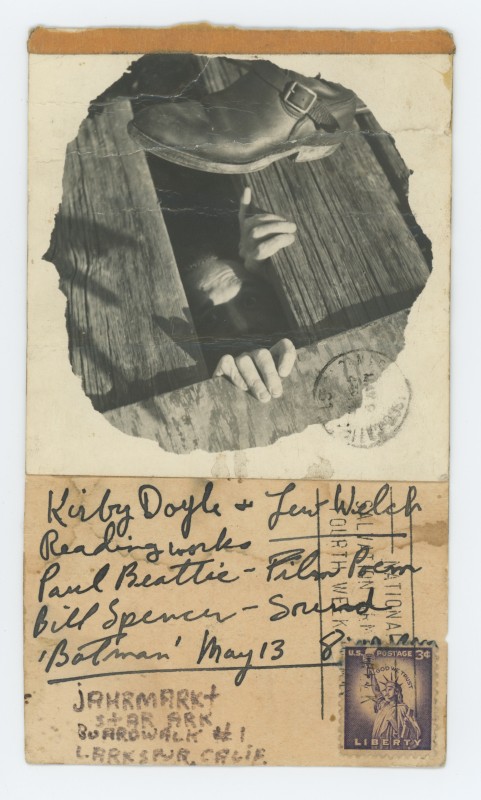 Kirby Doyle + Lew Welch
Reading works
Paul Beattie - Film Poem
Bill Spencer - Sound
'Batman' May 13
NATIONAL
SALVATION ARMY
WEEK
U.S. POSTAGE 3¢
IN GOD WE TRUST
LIBERTY
JAHRMARKT
STAR ARK
BOARDWALK #1
LARKSPUR, CALIF.